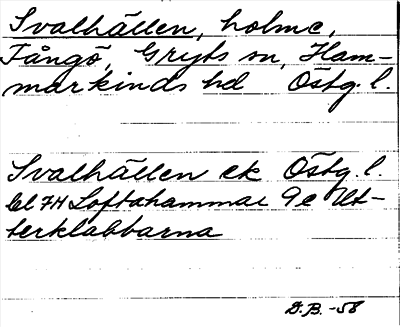 Svalhällen, holme,
Fångö, Gryts sn, Ham-
markinds hd Östg. l.
Svalhällen ek Östg. l.
bl 7H Loftahammar 9e Ut-
terklabbarna
G.B. -58